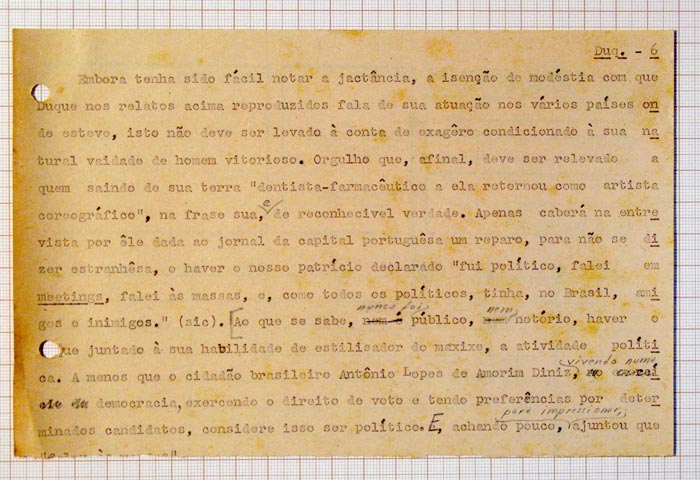 Duq. - 6
Embora tenha sido fácil notar a jactância, a isenção de modéstia com que
Duque nos relatos acima reproduzidos fala de sua atuação nos vários países on
de esteve, isto não deve ser levado à conta de exagêro condicionado à sua na
tural vaidade de homem vitorioso. Orgulho que, afinal, deve ser relevado a
quem saindo de sua terra "dentista-farmacêutico a ela retornou como artista
coreográfico", na frase sua, e de reconhecivel verdade. Apenas caberá na entre
vista por êle dada ao jornal da capital portuguêsa um reparo, para não se di
zer estranhêsa, o haver o nosso patrício declarado "fui político, falei em
meetings, falei às massas, e, como todos os políticos, tinha, no Brasil, ami
gos e inimigos." (sic). [Ao que se sabe, nunca foi, nem é público, nem notório, haver o
que juntado à sua habilidade de estilisador do maxixe, a atividade políti
ca. A menos que o cidadão brasileiro Antônio Lopes de Amorim Diniz, vivendo numa
democracia, exercendo o direito de voto e tendo preferências por deter
minados candidatos, considere isso ser político. E, achando pouco, para impressionar, ajuntou que